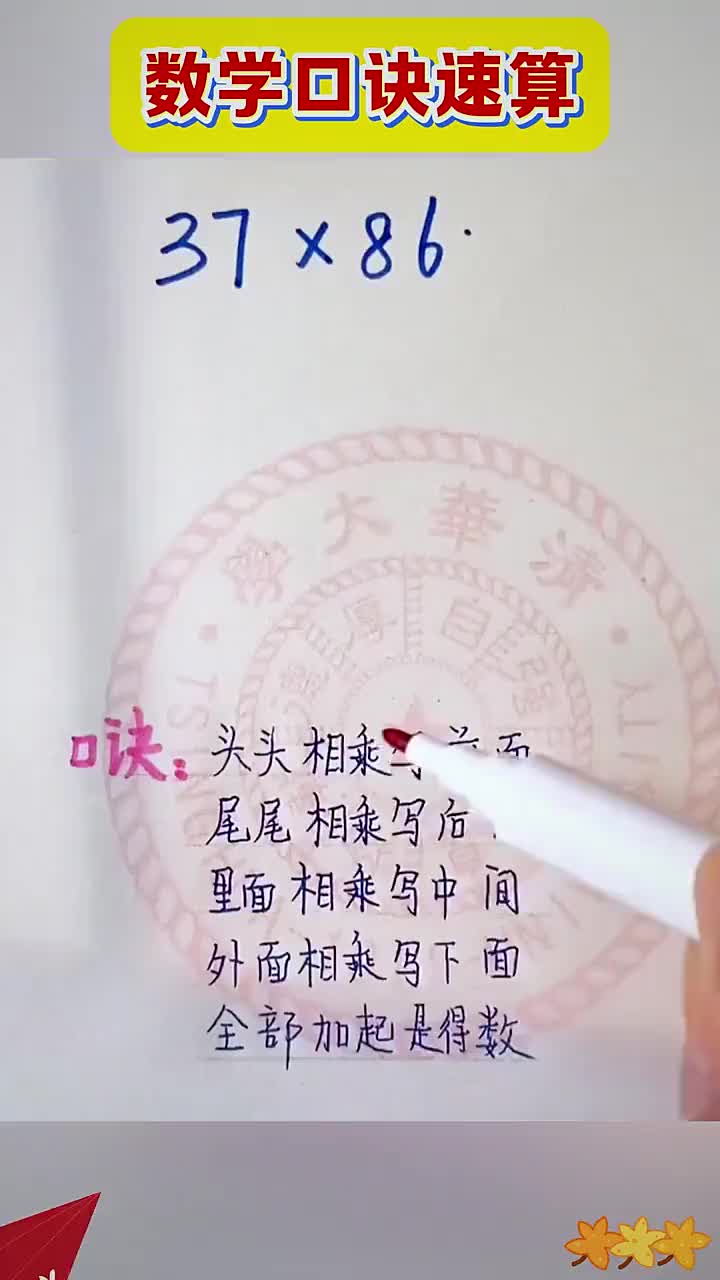 数学口诀速算
37×86
清華大學
自强
厚
口诀：头头相乘写前面
尾尾相乘写后
里面相乘写中间
外面相乘写下面
全部加起是得数